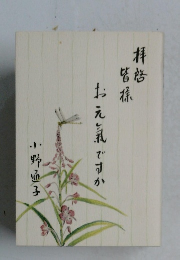 拝啓
皆様
お元氣ですか
小野通子